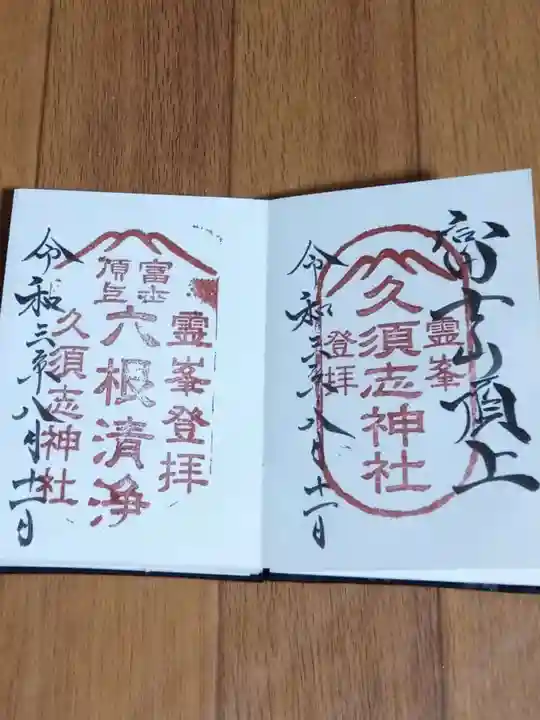 富士山頂上
霊峯
登拝
久須志神社
令和三年八月十一日
霊峯登拝
富士
頂上
六根清浄
久須志神社
令和三年八月十一日